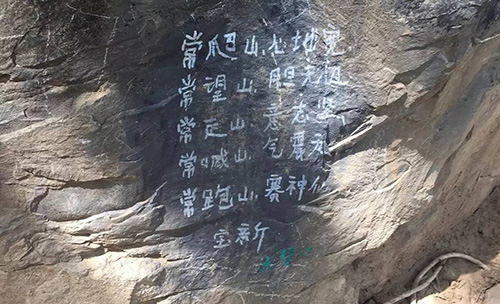 常爬山心地宽
常望山胆无
常走山意志坚
常喊山气震
常跑山赛神仙
新